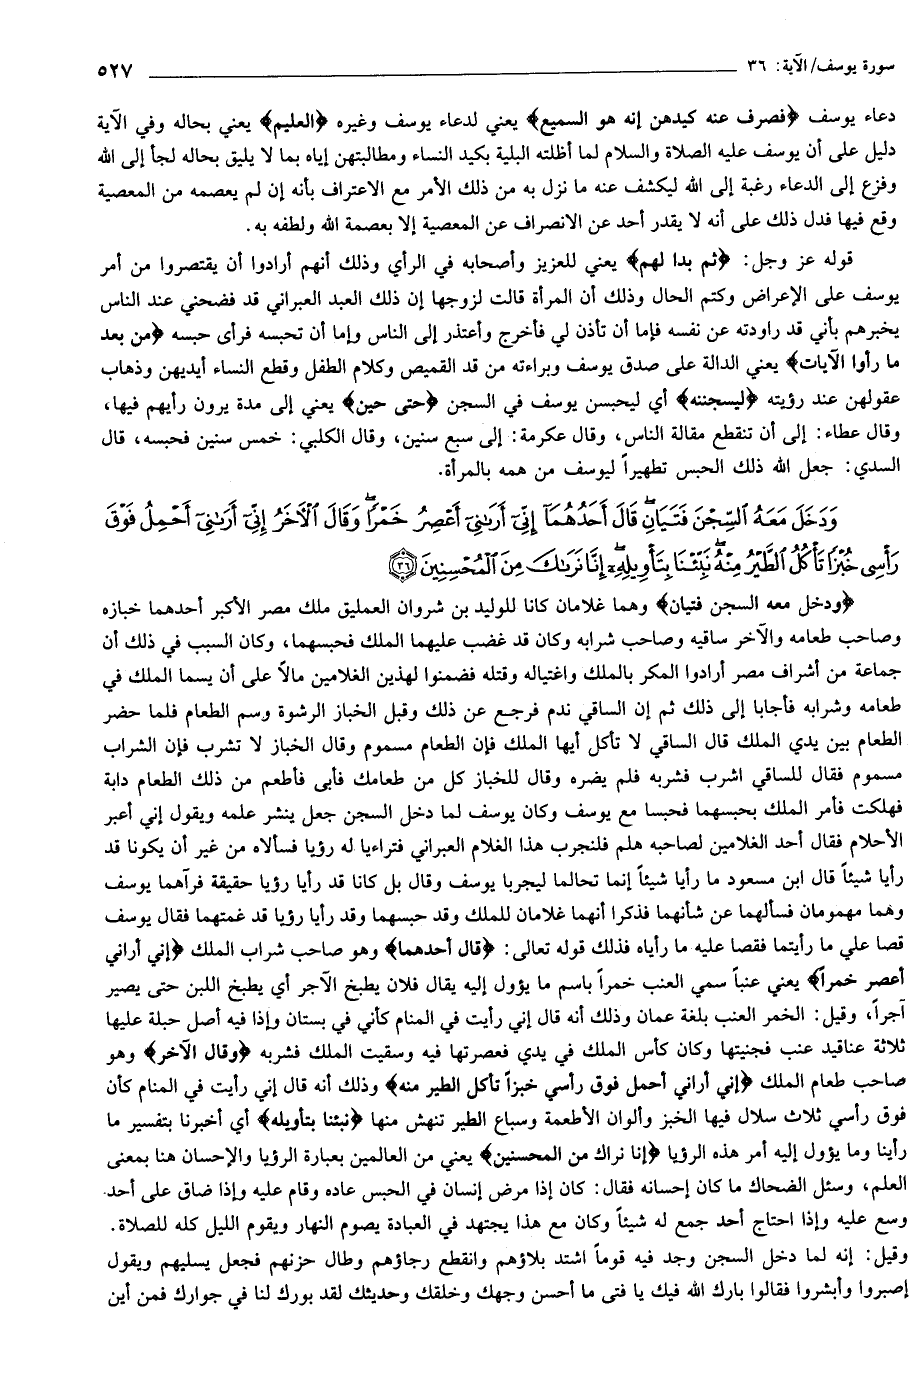 سورة يوسف/ الآية: ٣٦ ٥٢٧
دعاء يوسف ﴿فصرف عنه كيدهن إنه هو السميع﴾ يعني لدعاء يوسف وغيره ﴿العليم﴾ يعني بحاله وفي الآية
دليل على أن يوسف عليه الصلاة والسلام لما أظلته البلية بكيد النساء ومطالبتهن إياه بما لا يليق بحاله لجأ إلى الله
وفزع إلى الدعاء رغبة إلى الله ليكشف عنه ما نزل به من ذلك الأمر مع الاعتراف بأنه إن لم يعصمه من المعصية
وقع فيها فدل ذلك على أنه لا يقدر أحد عن الانصراف عن المعصية إلا بعصمة الله ولطفه به.
قوله عز وجل: ﴿ثم بدا لهم﴾ يعني للعزيز وأصحابه في الرأي وذلك أنهم أرادوا أن يقتصروا من أمر
يوسف على الإعراض وكتم الحال وذلك أن المرأة قالت لزوجها إن ذلك العبد العبراني قد فضحني عند الناس
يخبرهم بأني قد راودته عن نفسه فإما أن تأذن لي فأخرج وأعتذر إلى الناس وإما أن تحبسه فرأى حبسه ﴿من بعد
ما رأوا الآيات﴾ يعني الدالة على صدق يوسف وبراءته من قد القميص وكلام الطفل وقطع النساء أيديهن وذهاب
عقولهن عند رؤيته ﴿ليسجننه﴾ أي ليحبسن يوسف في السجن ﴿حتى حين﴾ يعني إلى مدة يرون رأيهم فيها،
وقال عطاء: إلى أن تنقطع مقالة الناس، وقال عكرمة: إلى سبع سنين، وقال الكلبي: خمس سنين فحبسه، قال
السدي: جعل الله ذلك الحبس تطهيراً ليوسف من همه بالمرأة.
وَدَخَلَ مَعَهُ ٱلسِّجْنَ فَتَيَانِۖ قَالَ أَحَدُهُمَآ إِنِّىٓ أَرَىٰنِىٓ أَعْصِرُ خَمْرًاۖ وَقَالَ ٱلْآخَرُ إِنِّىٓ أَرَىٰنِىٓ أَحْمِلُ فَوْقَ
رَأْسِى خُبْزًا تَأْكُلُ ٱلطَّيْرُ مِنْهُۖ نَبِّئْنَا بِتَأْوِيلِهِۦٓۖ إِنَّا نَرَىٰكَ مِنَ ٱلْمُحْسِنِينَ ﴿٣٦﴾
﴿ودخل معه السجن فتيان﴾ وهما غلامان كانا للوليد بن شروان العمليق ملك مصر الأكبر أحدهما خبازه
وصاحب طعامه والآخر ساقيه وصاحب شرابه وكان قد غضب عليهما الملك فحبسهما، وكان السبب في ذلك أن
جماعة من أشراف مصر أرادوا المكر بالملك واغتياله وقتله فضمنوا لهذين الغلامين مالاً على أن يسما الملك في
طعامه وشرابه فأجابا إلى ذلك ثم إن الساقي ندم فرجع عن ذلك وقبل الخباز الرشوة وسم الطعام فلما حضر
الطعام بين يدي الملك قال الساقي لا تأكل أيها الملك فإن الطعام مسموم وقال الخباز لا تشرب فإن الشراب
مسموم فقال للساقي اشرب فشربه فلم يضره وقال للخباز كل من طعامك فأبى فأطعم من ذلك الطعام دابة
فهلكت فأمر الملك بحبسهما فحبسا مع يوسف وكان يوسف لما دخل السجن جعل ينشر علمه ويقول إني أعبر
الأحلام فقال أحد الغلامين لصاحبه هلم فلنجرب هذا الغلام العبراني فتراءيا له رؤيا فسألاه من غير أن يكونا قد
رأيا شيئاً قال ابن مسعود ما رأيا شيئاً إنما تحالما ليجربا يوسف وقال بل كانا قد رأيا رؤيا حقيقة فرآهما يوسف
وهما مهمومان فسألهما عن شأنهما فذكرا أنهما غلامان للملك وقد حبسهما وقد رأيا رؤيا قد غمتهما فقال يوسف
قصا علي ما رأيتما فقصا عليه ما رأياه فذلك قوله تعالى: ﴿قال أحدهما﴾ وهو صاحب شراب الملك ﴿إني أراني
أعصر خمراً﴾ يعني عنباً سمي العنب خمراً باسم ما يؤول إليه يقال فلان يطبخ الآجر أي يطبخ اللبن حتى يصير
آجراً، وقيل: الخمر العنب بلغة عمان وذلك أنه قال إني رأيت في المنام كأني في بستان وإذا فيه أصل حبلة عليها
ثلاثة عناقيد عنب فجنيتها وكان كأس الملك في يدي فعصرتها فيه وسقيت الملك فشربه ﴿وقال الآخر﴾ وهو
صاحب طعام الملك ﴿إني أراني أحمل فوق رأسي خبزاً تأكل الطير منه﴾ وذلك أنه قال إني رأيت في المنام كأن
فوق رأسي ثلاث سلال فيها الخبز وألوان الأطعمة وسباع الطير تنهش منها ﴿نبئنا بتأويله﴾ أي أخبرنا بتفسير ما
رأينا وما يؤول إليه أمر هذه الرؤيا ﴿إنا نراك من المحسنين﴾ يعني من العالمين بعبارة الرؤيا والإحسان هنا بمعنى
العلم، وسئل الضحاك ما كان إحسانه فقال: كان إذا مرض إنسان في الحبس عاده وقام عليه وإذا ضاق على أحد
وسع عليه وإذا احتاج أحد جمع له شيئاً وكان مع هذا يجتهد في العبادة يصوم النهار ويقوم الليل كله للصلاة.
وقيل: إنه لما دخل السجن وجد فيه قوماً اشتد بلاؤهم وانقطع رجاؤهم وطال حزنهم فجعل يسليهم ويقول
إصبروا وأبشروا فقالوا بارك الله فيك يا فتى ما أحسن وجهك وخلقك وحديثك لقد بورك لنا في جوارك فمن أين